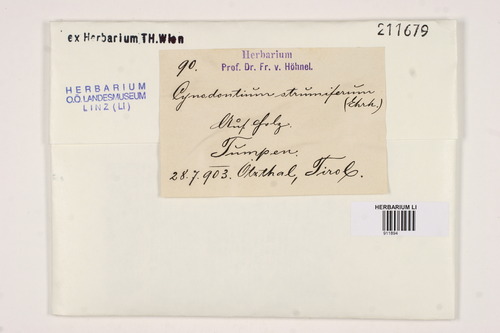 ex Herbarium TH. Wien
211679
HERBARIUM
O.Ö. LANDESMUSEUM
LINZ (LI)
90.
Herbarium
Prof. Dr. Fr. v. Höhnel.
Cynodontium strumiferum
(Ehrh.)
Auf Holz.
Tumpen.
28.7.903. Ötzthal, Tirol.
HERBARIUM LI
911894